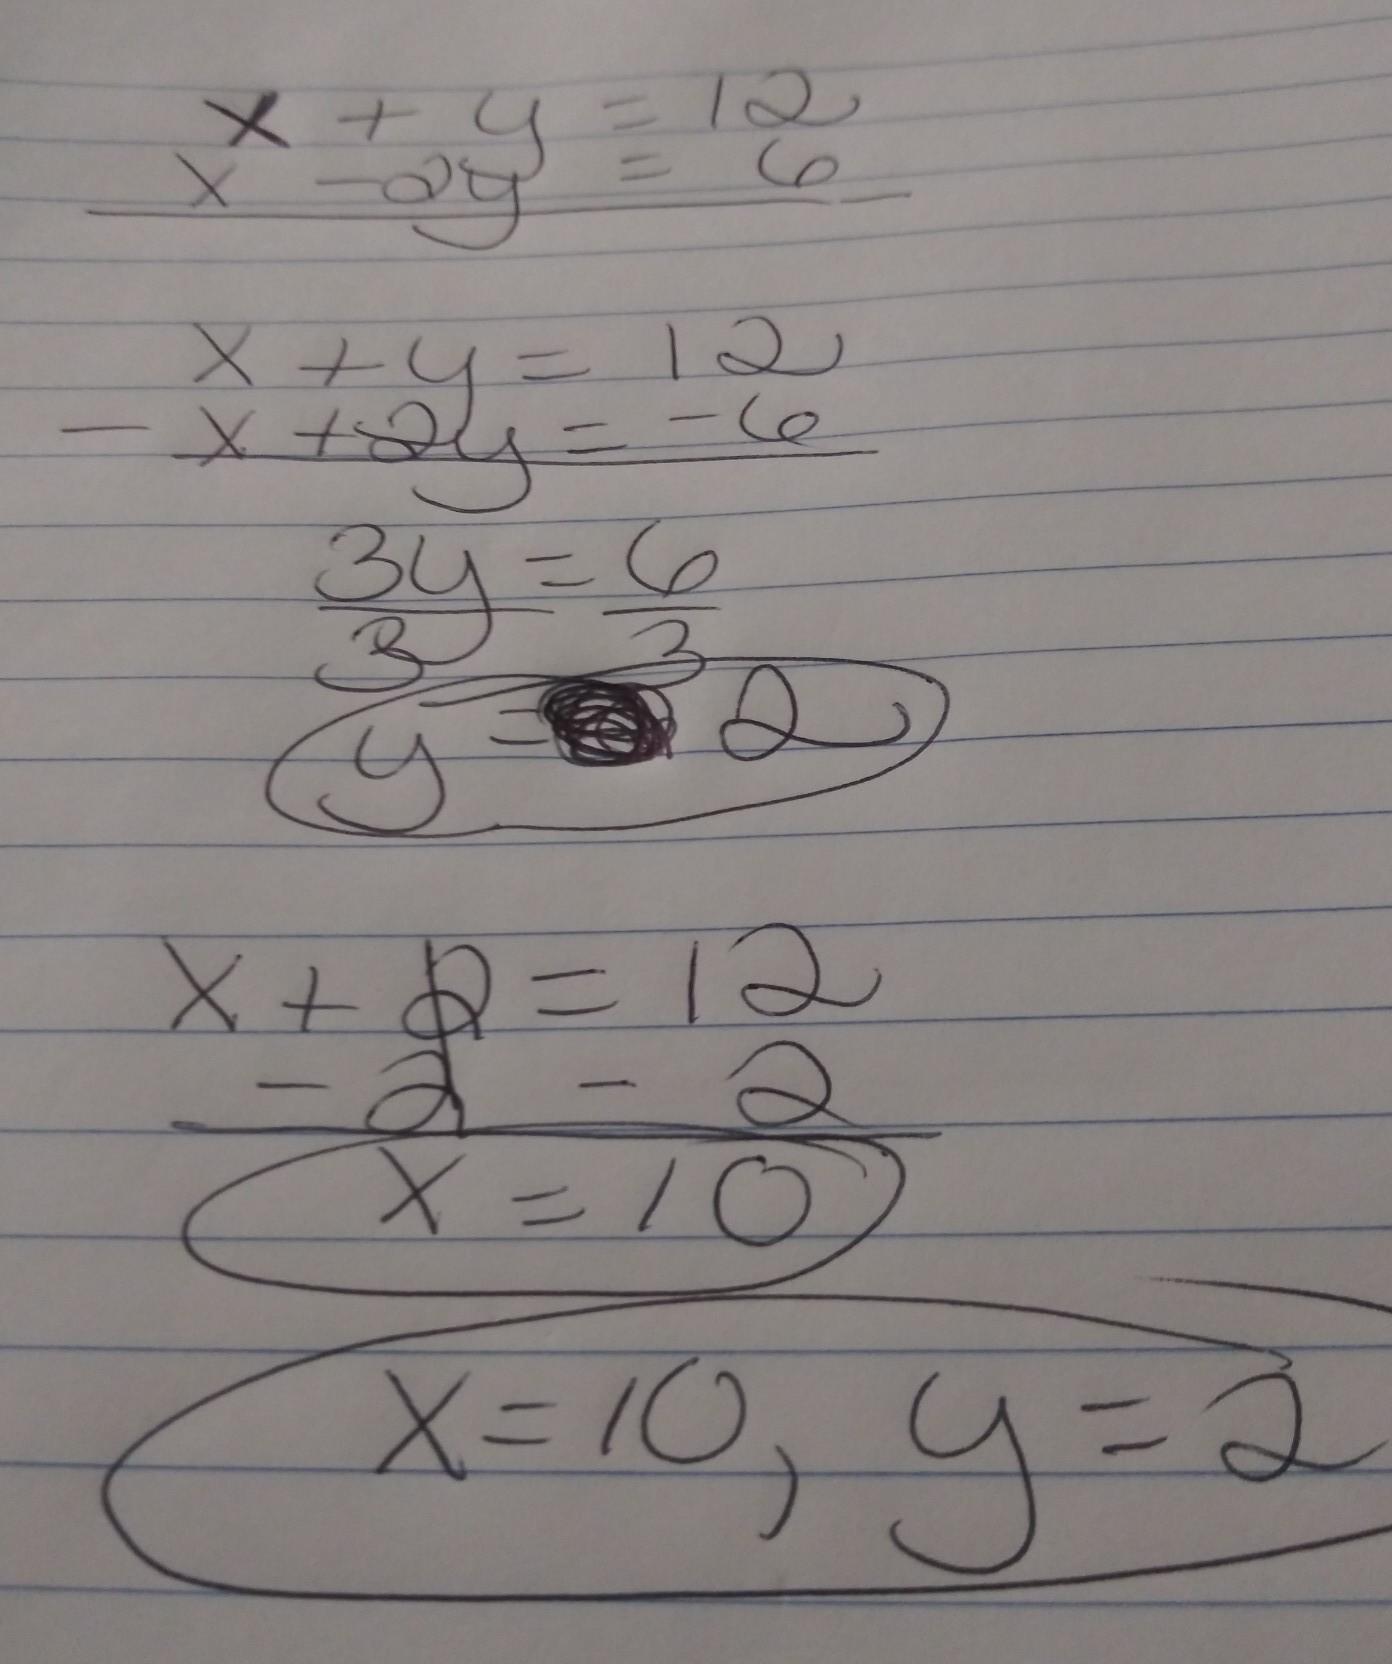 x + y = 12
x - 2y = 6
x + y = 12
- x + 2y = -6
3y = 6
3 3
y = 2
x + 2 = 12
- 2 - 2
x = 10
x = 10, y = 2